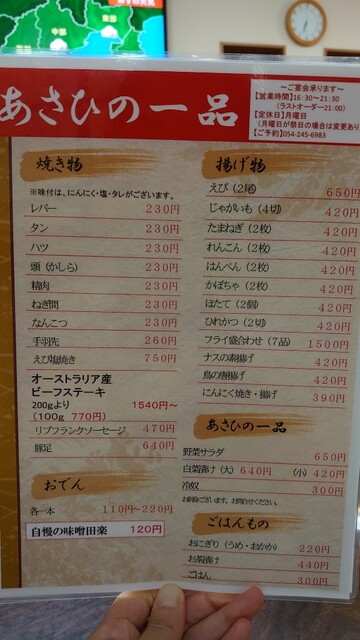 あさひの一品
～ご宴会承ります～
【営業時間】16:30～21:30
(ラストオーダー21:00)
【定休日】月曜日
(月曜日が祭日の場合は変更あり)
【ご予約】054-245-6983
焼き物
※味付は、にんにく・塩・タレがございます。
レバー 230円
タン 230円
ハツ 230円
頭 (かしら) 230円
精肉 230円
ねぎ間 230円
なんこつ 230円
手羽先 260円
えび塩焼き 750円
オーストラリア産
ビーフステーキ
200gより 1540円～
(100g 770円)
リブフランクソーセージ 470円
豚足 640円
おでん
各一本 110円～220円
自慢の味噌田楽 120円
揚げ物
えび (2尾) 650円
じゃがいも (4切) 420円
たまねぎ (2枚) 420円
れんこん (2枚) 420円
はんぺん (2枚) 420円
かぼちゃ (2枚) 420円
ほたて (2個) 420円
ひれかつ (2切) 420円
フライ盛合わせ (7品) 1500円
ナスの素揚げ 420円
鳥の唐揚げ 420円
にんにく焼き・揚げ 390円
あさひの一品
野菜サラダ 650円
白菜漬け (大) 640円 (小) 420円
冷奴 300円
ごはんもの
おにぎり (うめ・おかか) 220円
お茶漬け 440円
ごはん 300円